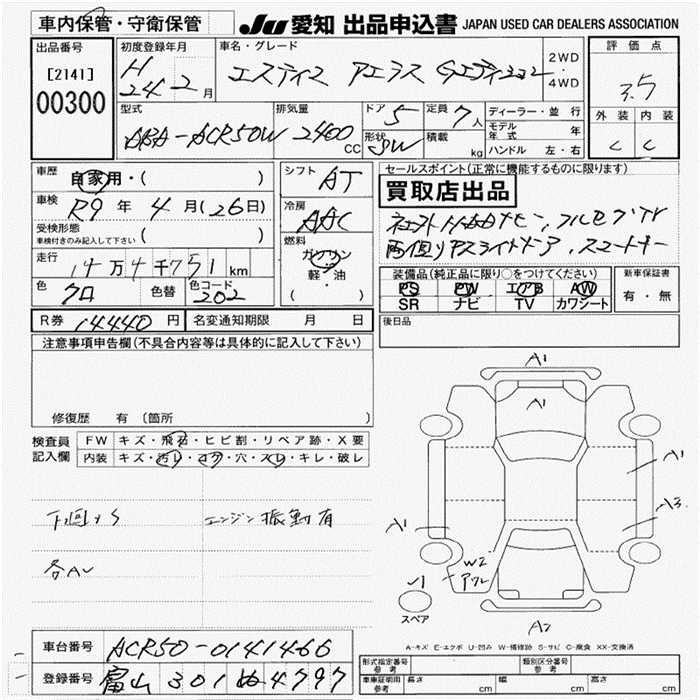 車内保管・守衛保管
JU 愛知 出品申込書 JAPAN USED CAR DEALERS ASSOCIATION
出品番号
[2141]
00300
初度登録年月
H 24 2 月
車名・グレード
エスティマ アエラス Gエディション
2WD
・
4WD
評価点
3.5
外装 内装
C C
型式
ABA-ACR50W
排気量
2400 CC
ドア
5
形状
SW
定員
7 人
積載
kg
ディーラー・並行
モデル年式 年
ハンドル 左・右
車歴
自家用・( )
車検
R9 年 4 月(26日)
受検形態
車検付きのみ記入して下さい ( )
走行
14万4千751 km
色
クロ
色替
色コード
202
シフト
AT
冷房
AAC
燃料
ガソリン
軽・油
( )
セールスポイント(正常に機能するものに限ります)
買取店出品
両側パワースライドドア、スマートキー
装備品(純正品に限り○をつけてください)
PS PW エアB AW
SR ナビ TV カワシート
新車保証書
有・無
R券 14440 円
名変通知期限 月 日
後日品
注意事項申告欄(不具合内容等は具体的に記入して下さい)
修復歴 有 〔箇所 〕
検査員記入欄
FW キズ・飛石・ヒビ割・リペア跡・X要
内装 キズ・汚れ・コゲ・穴・スレ・キレ・破レ
下廻りS
エンジン振動有
各AU
A1
A1
A1
A3
A1
W2
アクレ
J1
スペア
A2
A-キズ E-エクボ U-凹み W-補修跡 S-サビ C-腐食 XX-交換済
車台番号 ACR50-0141466
登録番号 富山 301 ぬ 4797
形式指定番号
参考
類別区分番号
参考
車庫証明用
参考
長さ cm 幅 cm 高さ cm